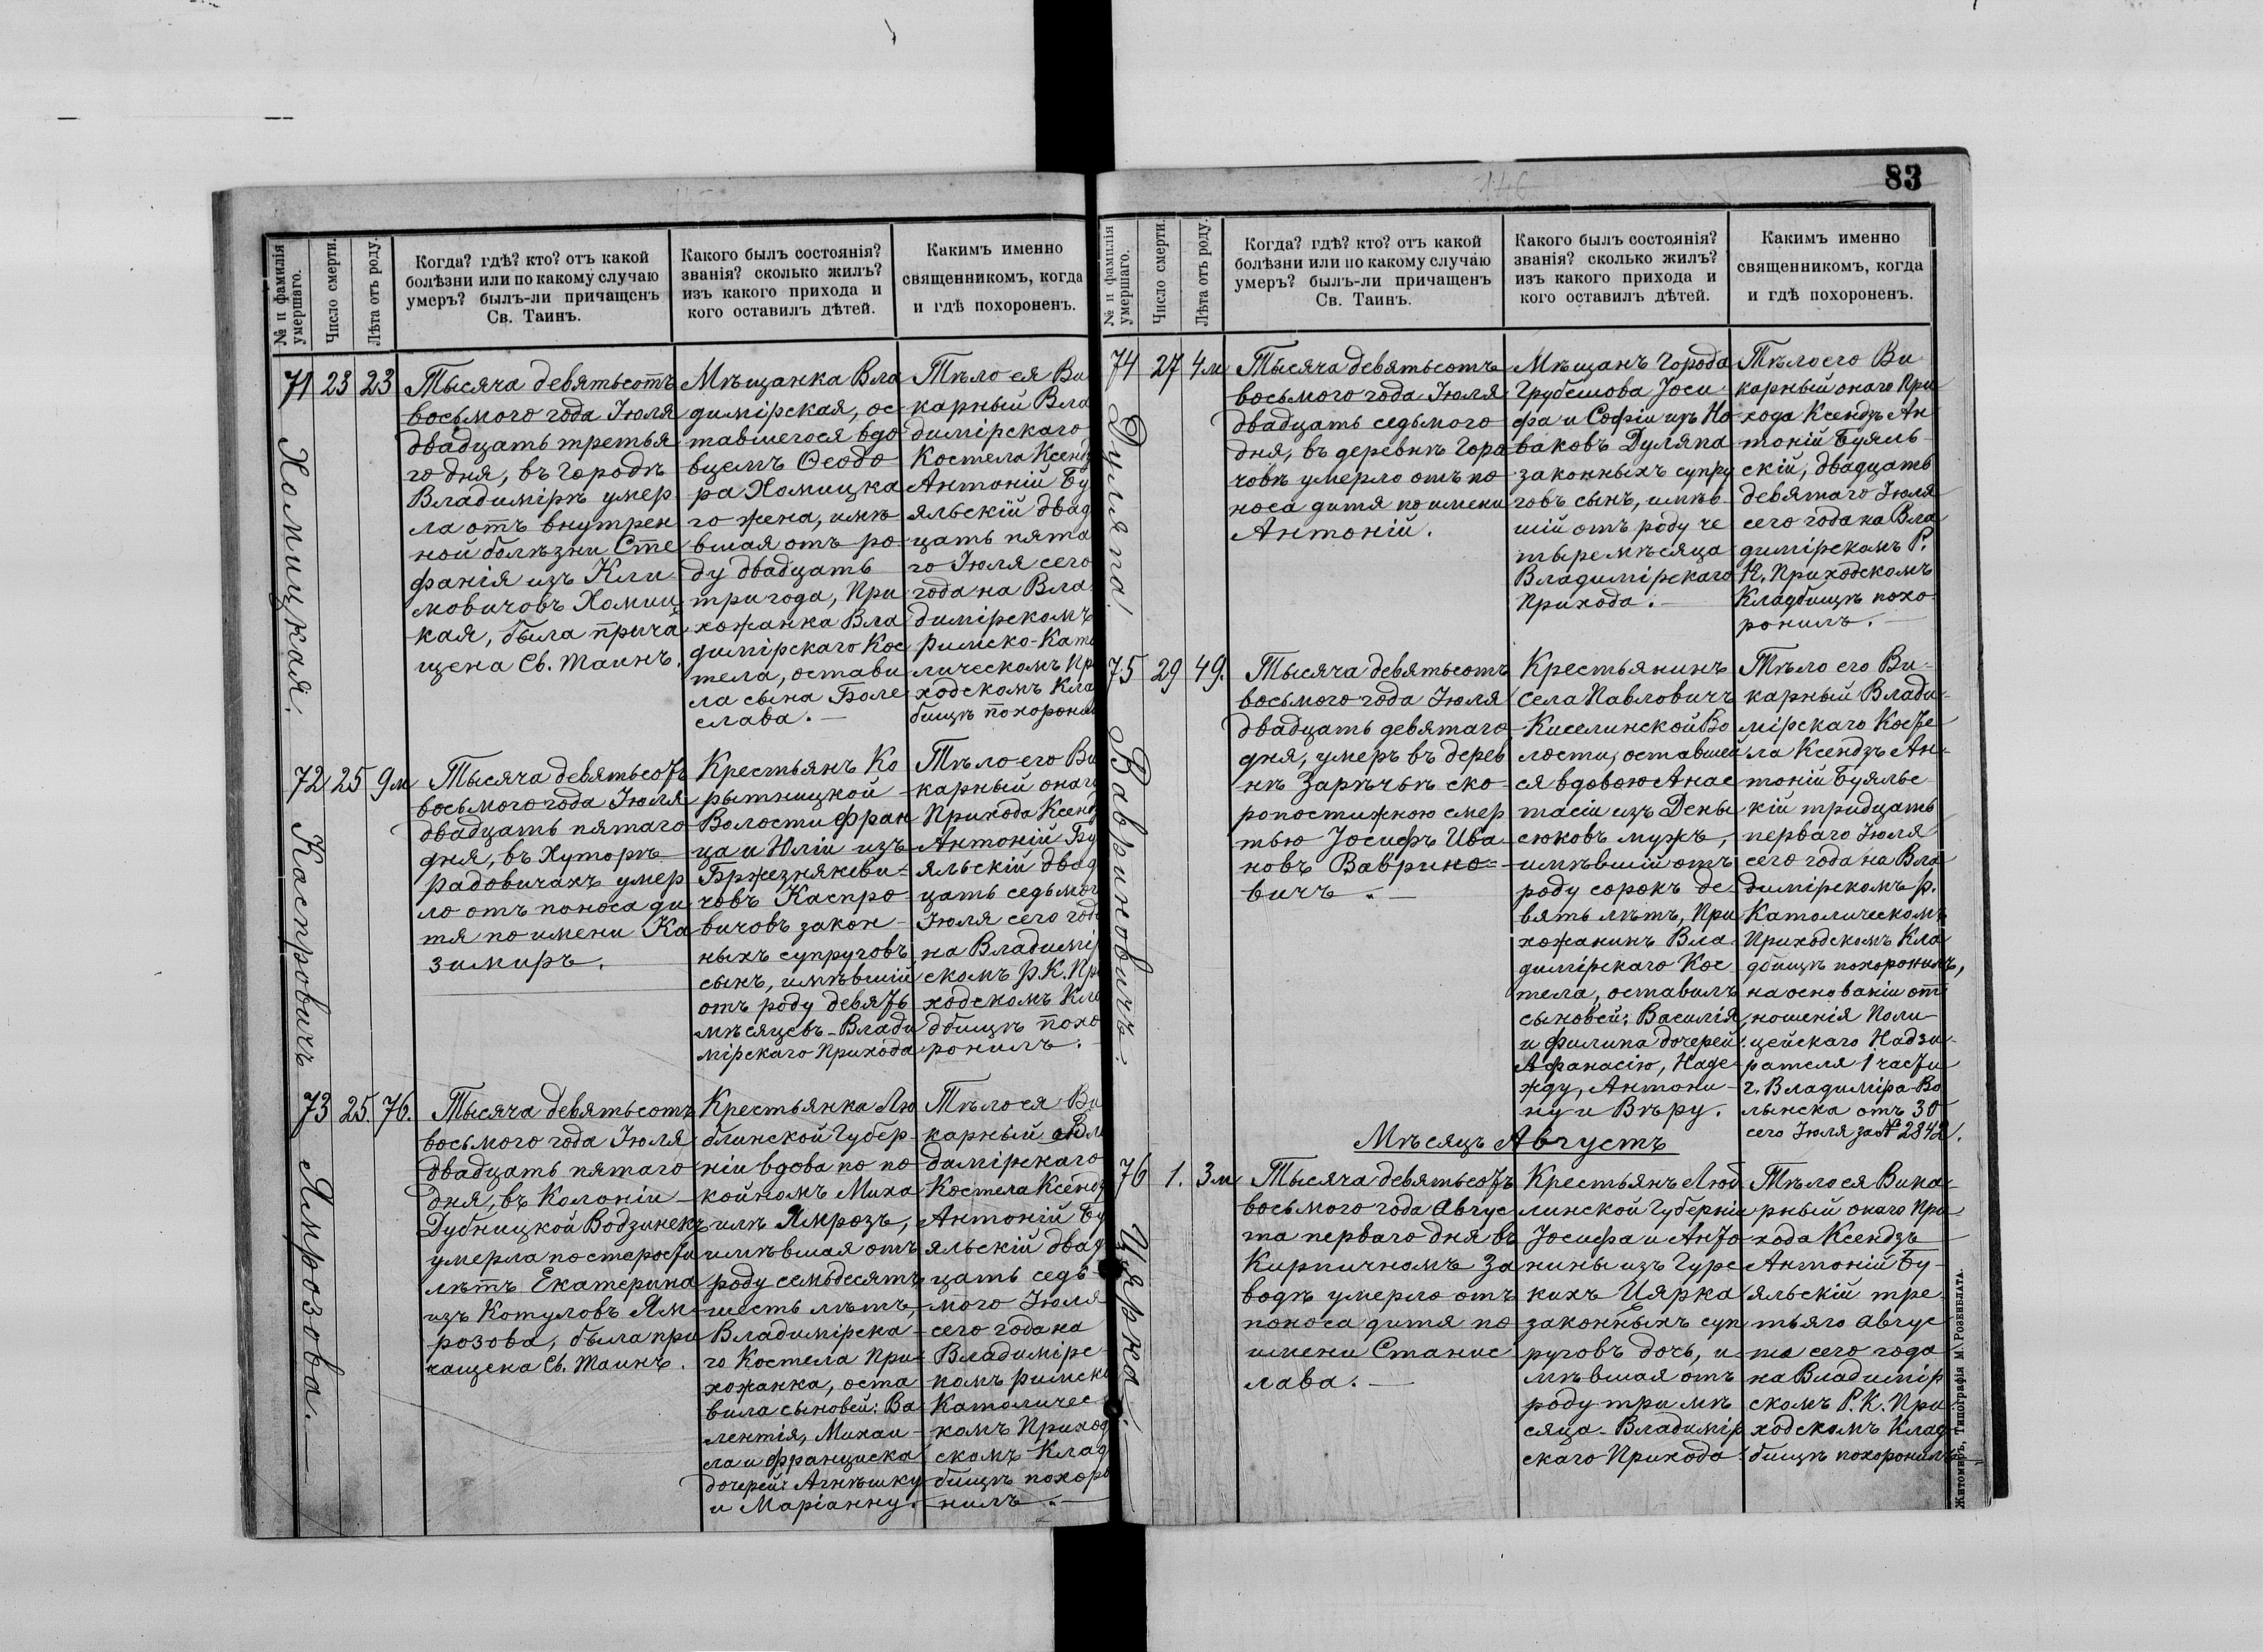 № и фамилія умершаго.
Число смерти.
Лѣта отъ роду.
Когда? гдѣ? кто? отъ какой
болѣзни или по какому случаю
умеръ? былъ-ли причащенъ
Св. Таинъ.
Какого былъ состоянія?
званія? сколько жилъ?
изъ какого прихода и
кого оставилъ дѣтей.
Какимъ именно
священникомъ, когда
и гдѣ похороненъ.
71
23
23
Хомицкая.
Тысяча девятьсотъ
восьмого года Іюля
двадцать третья
го дня, въ городѣ
Владимірѣ умер
ла отъ внутрен
ной болѣзни Сте
фанія изъ Кли
мовичовъ Хомиц
кая, была прича
щена Св. Таинъ.
Мѣщанка Вла
димірская, ос
тавшегося вдо
вцемъ Ѳеодо
ра Хомицка
го жена, имѣ
вшая отъ ро
ду двадцать
три года, При
хожанка Вла
димірскаго Кос
тела, остави
ла сына Боле
слава.
Тѣло ея Ви
карный Вла
димірскаго
Костела Ксендз
Антоній Бу
яльскій двад
цать пята
го Іюля сего
года на Вла
димірскомъ
Римско-Като
лическомъ Пр
ходскомъ Кла
бищѣ похорони
72
25
9 м
Каспровичъ
Тысяча девятьсотъ
восьмого года Іюля
двадцать пятаго
дня, въ Хуторѣ
Радовичахъ умер
ло отъ поноса ди
тя по имени Ка
зимиръ.
Крестьянъ Ко
рытницкой
Волости Фран
ца и Юліи изъ
Бржезнякеви-
човъ Каспро
вичовъ закон
ныхъ супруговъ
сынъ, имѣвшій
отъ роду девять
мѣсяцевъ - Влади
мірскаго Прихода
Тѣло его Ви
карный онаго
Прихода Ксендз
Антоній Бу
яльскій двад
цать седьмог
Іюля сего года
на Владимір
скомъ Р. К. При
ходскомъ Кла
дбищѣ похо
ронилъ.
73
25.
76.
Ямрозова.
Тысяча девятьсотъ
восьмого года Іюля
двадцать пятаго
дня, въ Колоніи
Дубницкой Водзинекъ
умерла по старости
лѣтъ Екатерина
изъ Котуловъ Ям
розова, была при
чащена Св. Таинъ.
Крестьянка Лю
блинской Губер
ніи вдова по по
койномъ Миха
илѣ Ямрозъ,
имѣвшая отъ
роду семьдесятъ
шесть лѣтъ,
Владимірска
го Костела При
хожанка, оста
вила сыновей: Ва
лентія, Михаи
ла и Франциска
дочерей: Агнѣшку
и Маріанну.
Тѣло ея Ви
карный
димірскаго
Костела Ксендз
Антоній Бу
яльскій двад
цать седь
мого Іюля
сего года на
Владимірс
комъ Римско
Католичес
комъ Приход
скомъ Клад
бищѣ похоро
нилъ.
83
146
№ и фамилія умершаго.
Число смерти.
Лѣта отъ роду.
Когда? гдѣ? кто? отъ какой
болѣзни или по какому случаю
умеръ? былъ-ли причащенъ
Св. Таинъ.
Какого былъ состоянія?
званія? сколько жилъ?
изъ какого прихода и
кого оставилъ дѣтей.
Какимъ именно
священникомъ, когда
и гдѣ похороненъ.
74
27
4 м
Дуляпа.
Тысяча девятьсотъ
восьмого года Іюля
двадцать седьмого
дня, въ деревнѣ Горо
ховѣ умерло отъ по
носа дитя по имени
Антоній.
Мѣщанъ города
Грубешова Іоси
фа и Софіи изъ Но
ваковъ Дуляпа
законныхъ супру
говъ сынъ, имѣв
шій отъ роду че
тыре мѣсяца
Владимірскаго
Прихода.
Тѣло его Ви
карный онаго При
хода Ксендзъ Ан
тоній Буяль
скій, двадцать
девятаго Іюля
сего года на Вла
димірскомъ Р.
К. Приходскомъ
Кладбищѣ похо
ронилъ.
75
29
49.
Вавриновичъ.
Тысяча девятьсотъ
восьмого года Іюля
двадцать девятаго
дня, умеръ въ дерев
нѣ Зарѣчьѣ ско
ропостижною смер
тью Іосифъ Ива
новъ Ваврино=
вичъ.
Крестьянинъ
села Павловичъ
Киселинской Во
лости, оставшей
ся вдовою Анас
тасіи изъ Дены
сюковъ мужъ,
имѣвшій отъ
роду сорокъ де
вять лѣтъ, При
хожанинъ Вла
димірскаго Кос
тела, оставилъ
сыновей: Василія
и Филипа дочерей:
Афанасію, Наде
жду, Антони
ну и Вѣру.
Тѣло его Ви-
карный Влади-
мірскаго Косте
ла Ксендзъ Ан-
тоній Буяльс
кій тридцать
перваго Іюля
сего года на Вла
димірскомъ Р.
Католическомъ
Приходскомъ Кла
дбищѣ похоронилъ,
на основаніи от
ношенія Поли-
цейскаго Надзи-
рателя 1 части
г. Владиміра-Во
лынска отъ 30
сего Іюля за № 2842.
Мѣсяцъ Августъ
76
1.
3 м
Цярка.
Тысяча девятьсотъ
восьмого года Авгус
та перваго дня въ
Кирпичномъ За
водѣ умерло отъ
поноса дитя по
имени Станис
лава.
Крестьянъ Люб
линской Губерніи
Іосифа и Анто
нины изъ Гурс
кихъ Цярка
законныхъ суп
руговъ дочь, и
мѣвшая отъ
роду три мѣ
сяца - Владимір
скаго Прихода
Тѣло ея Вика-
рный онаго При
хода Ксендзъ
Антоній Бу-
яльскій тре
тьяго Авгус
та сего года
на Владимір
скомъ Р. К. При
ходскомъ Клад
бищѣ похоронилъ
Житомиръ, Типографія М. Розенблата.